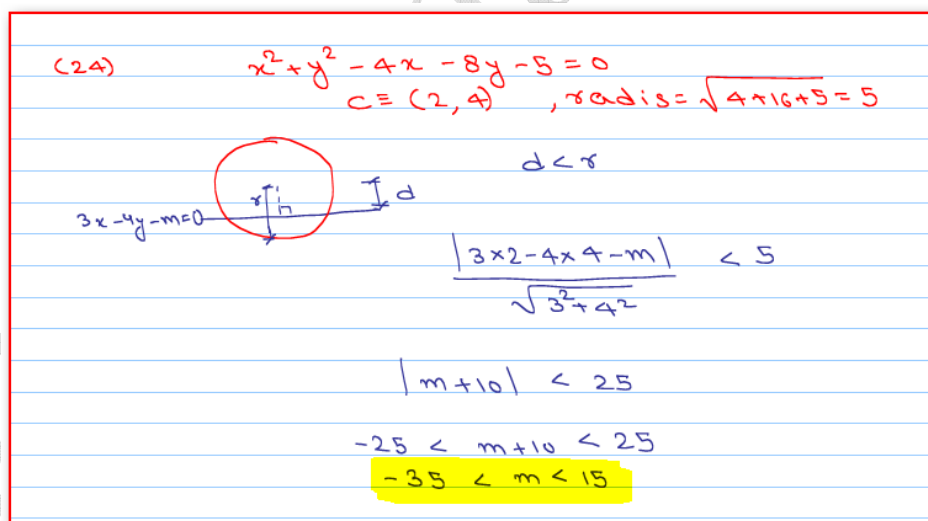 (24) x² + y² - 4x - 8y - 5 = 0
C ≡ (2, 4) , radis = √4+16+5 = 5
d < r
r
d
3x-4y-m=0
|3×2-4×4-m| / √3²+4² < 5
|m+10| < 25
-25 < m+10 < 25
-35 < m < 15